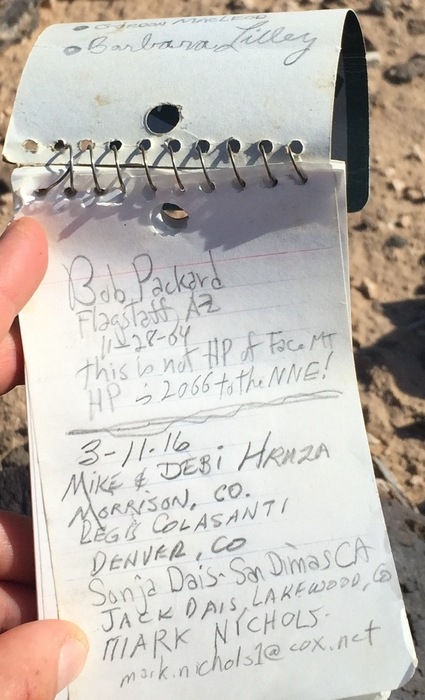 • GORDON MACLEOD
• Barbara Lilley
Bob Packard
Flagstaff, AZ
11-28-04
this is not HP of Face MT
HP is 2066 to the NNE!
3-11-16
MIKE & DEBI HRUZA
MORRISON, CO.
REGIS COLASANTI
DENVER, CO
Sonja Dais-San Dimas CA
JACK DAIS, LAKEWOOD, CO
MARK NICHOLS-
mark.nichols1@cox.net